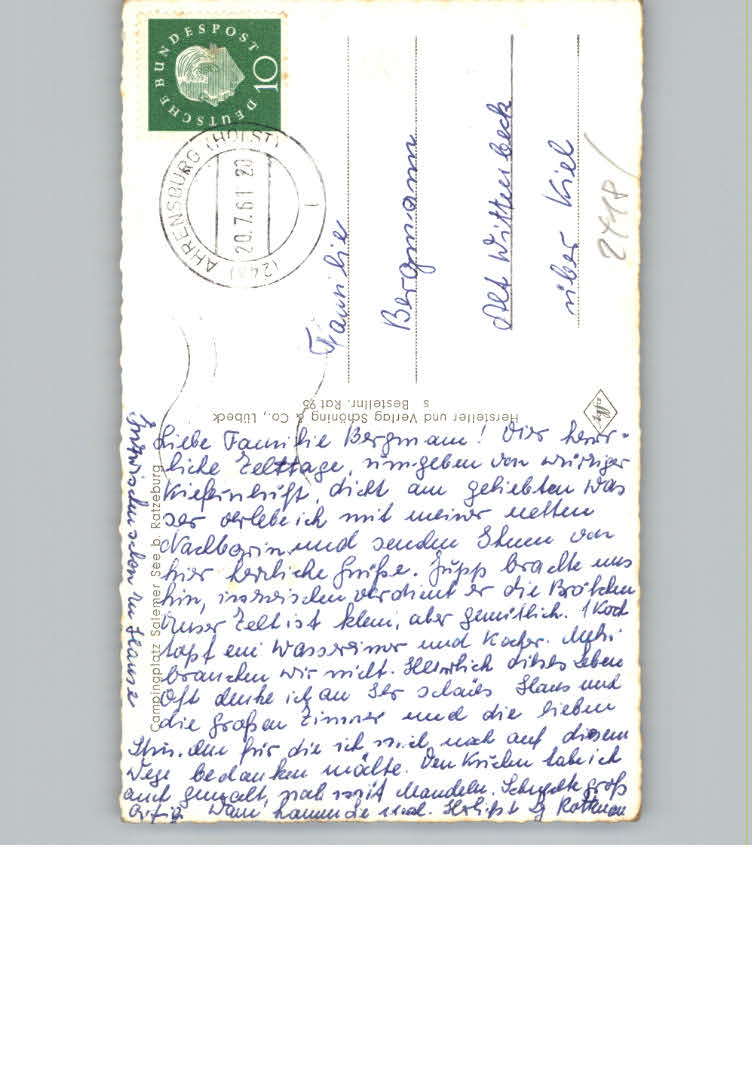 DEUTSCHE BUNDESPOST
10
AHRENSBURG (HOLST)
20.7.61 20
(24a)
Familie
Bergmann
Alt Wittenbeck
über Kiel
2418
Hersteller und Verlag Schöning & Co., Lübeck
s Bestellnr. Rat 95
Campingplatz Salemer See b. Ratzeburg
Liebe Familie Bergmann! Vier herr-
liche Zelttage, umgeben von würziger
Kiefernluft, dicht am geliebten Was
ser verlebe ich mit meiner netten
Nachbarin und senden Ihnen von
hier herzliche Grüße. Jupp brachte uns
hin, inzwischen verdient er die Brötchen
Unser Zelt ist klein, aber gemütlich. 1 Koch
topf ein Wassereimer und Kocher. Mehr
brauchen wir nicht. Herrlich dieses Leben
Oft denke ich an Ihr schönes Haus und
die großen Zimmer und die lieben
Stunden für die ich mich noch auf diesem
Wege bedanken möchte. Den Kuchen habe ich
auch gemacht, noch mit Mandeln. Schmeckte groß
artig Wann kommen Sie mal. Herzlichst
Inzwischen schon zu Hause